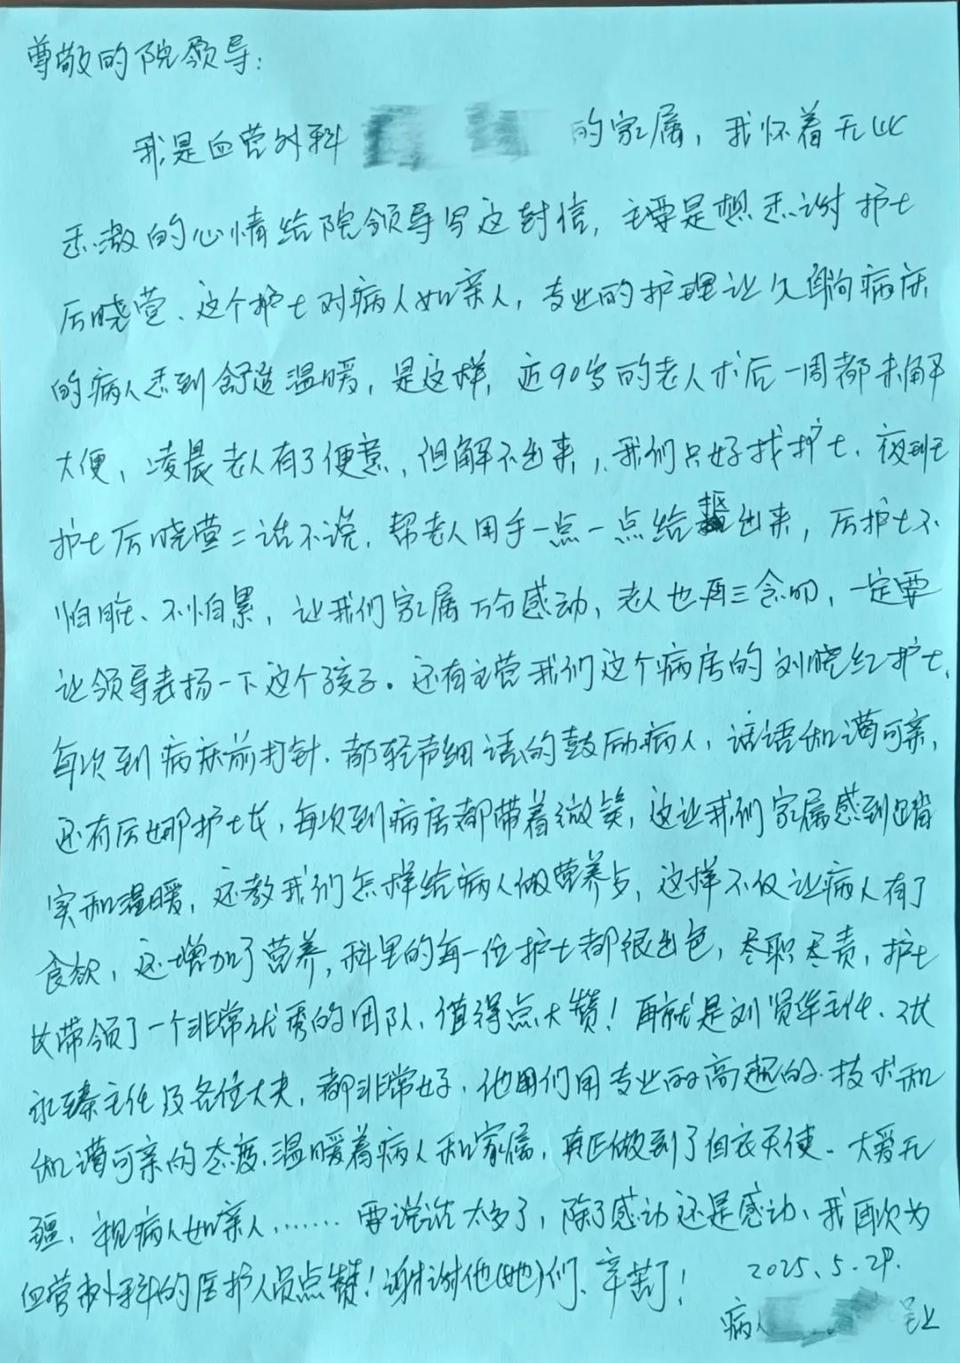 尊敬的院领导:
我是血管外科 的家属，我怀着无比
感激的心情给院领导写这封信，主要是想感谢护士
厉晓莹、这个护士对病人如亲人，专业的护理让久躺病床
的病人感到舒适温暖，是这样，近90岁的老人术后一周都未解
大便，凌晨老人有了便意，但解不出来，我们只好找护士、夜班
护士厉晓莹二话不说，帮老人用手一点一点给抠出来，厉护士不
怕脏、不怕累，让我们家属万分感动，老人也再三念叨，一定要
让领导表扬一下这个孩子。还有主管我们这个病房的刘晓红护士，
每次到病床前打针，都轻声细语的鼓励病人，话语和蔼可亲，
还有厉娜护士长，每次到病房都带着微笑，这让我们家属感到踏
实和温暖，还教我们怎样给病人做营养与，这样不仅让病人有了
食欲，还增加了营养，科里的每一位护士都很出色，尽职尽责，护士
长带领了一个非常优秀的团队，值得点大赞！再就是刘贤华主任、
永臻主任及各位大夫，都非常好，他用们用专业的高超的技术和
和蔼可亲的态度，温暖着病人和家属，真正做到了白衣天使、大爱无
疆，视病人如亲人……要说说太多了，除了感动还是感动、我再次为
血管外科的医护人员点赞！谢谢他(她)们、辛苦了！ 2025.5.29.
病人 上